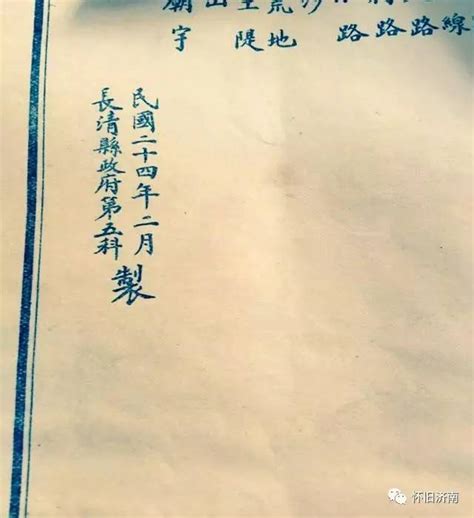 線
路
路
路
沙
荒地
堤
山
廟宇
民國二十四年二月
長清縣政府第五科
製
怀旧济南